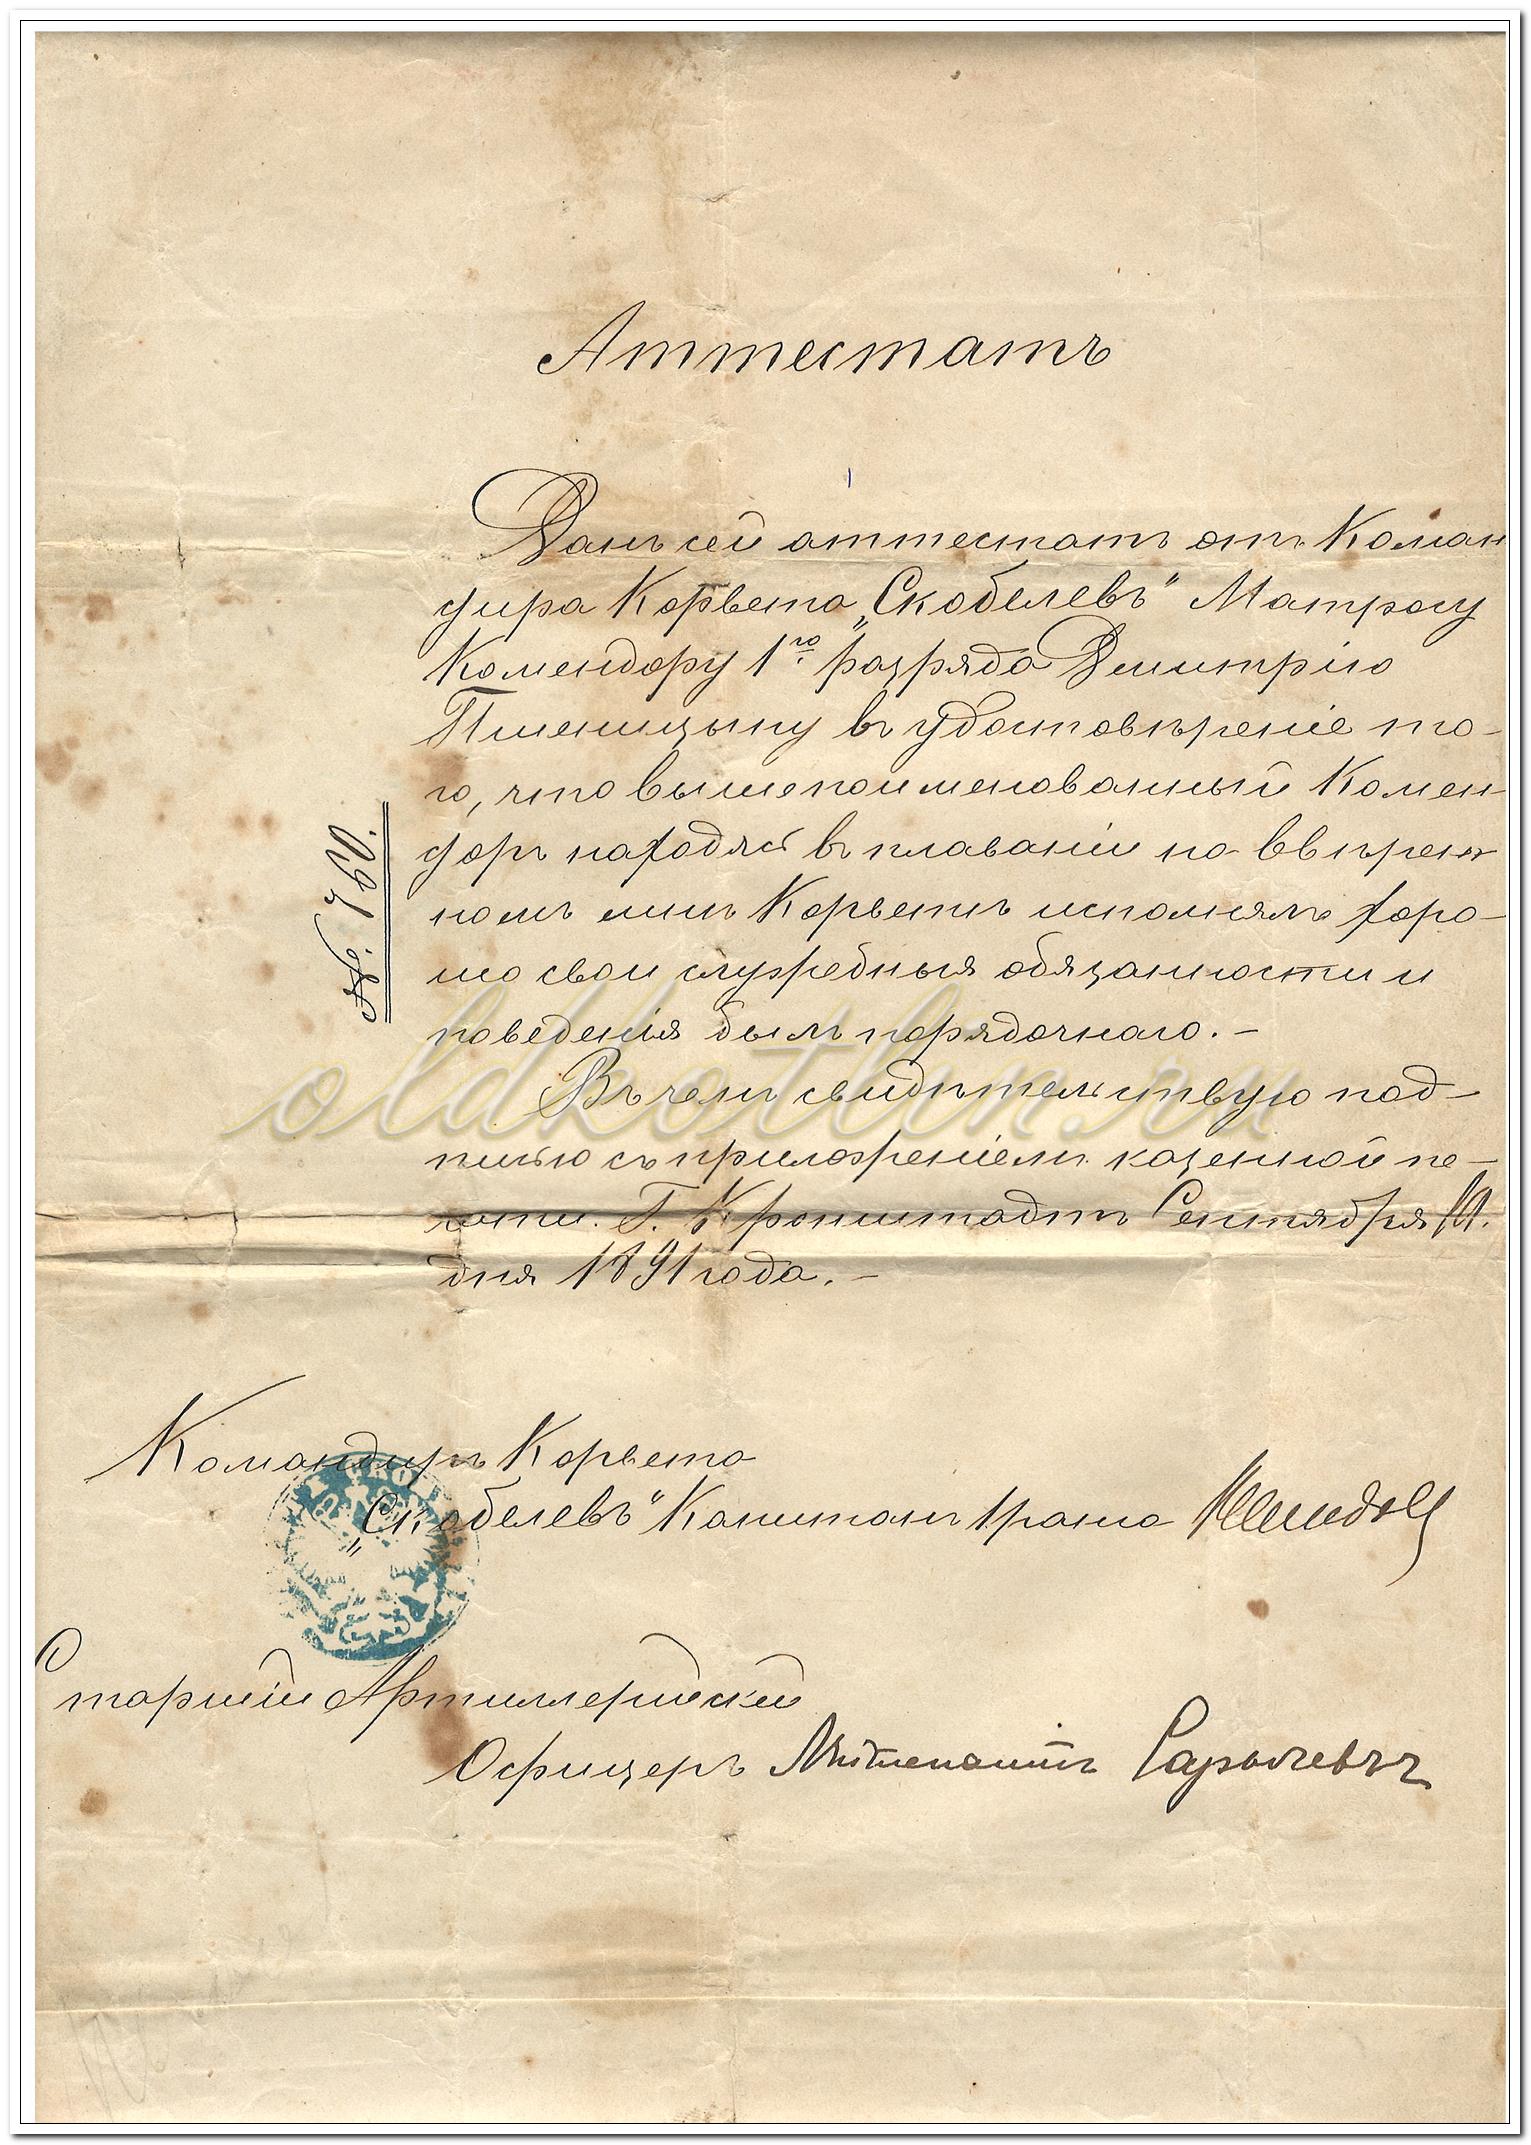 Аттестатъ
Данъ сей аттестатъ отъ Коман
дира Корвета „Скобелевъ“ Матросу
Комендору 1го разряда Димитрію
Пшеницыну въ удостовѣреніе то-
го, что вышепоименованный Комен-
доръ находясь въ плаваніи на ввѣрен-
номъ мнѣ Корветѣ исполнялъ хоро-
шо свои служебныя обязанности и
поведенія былъ порядочнаго. –
Въ чемъ свидѣтельствую под-
писью съ приложеніемъ казенной пе-
чати. Г. Кронштадтъ Сентября
дня 1891 года. –
№. 760.
Командиръ Корвета
„Скобелевъ“ Капитанъ 1 ранга
Старшій Артиллерійскій
Офицеръ Лейтенантъ Сарычевъ
oldkotlin.ru